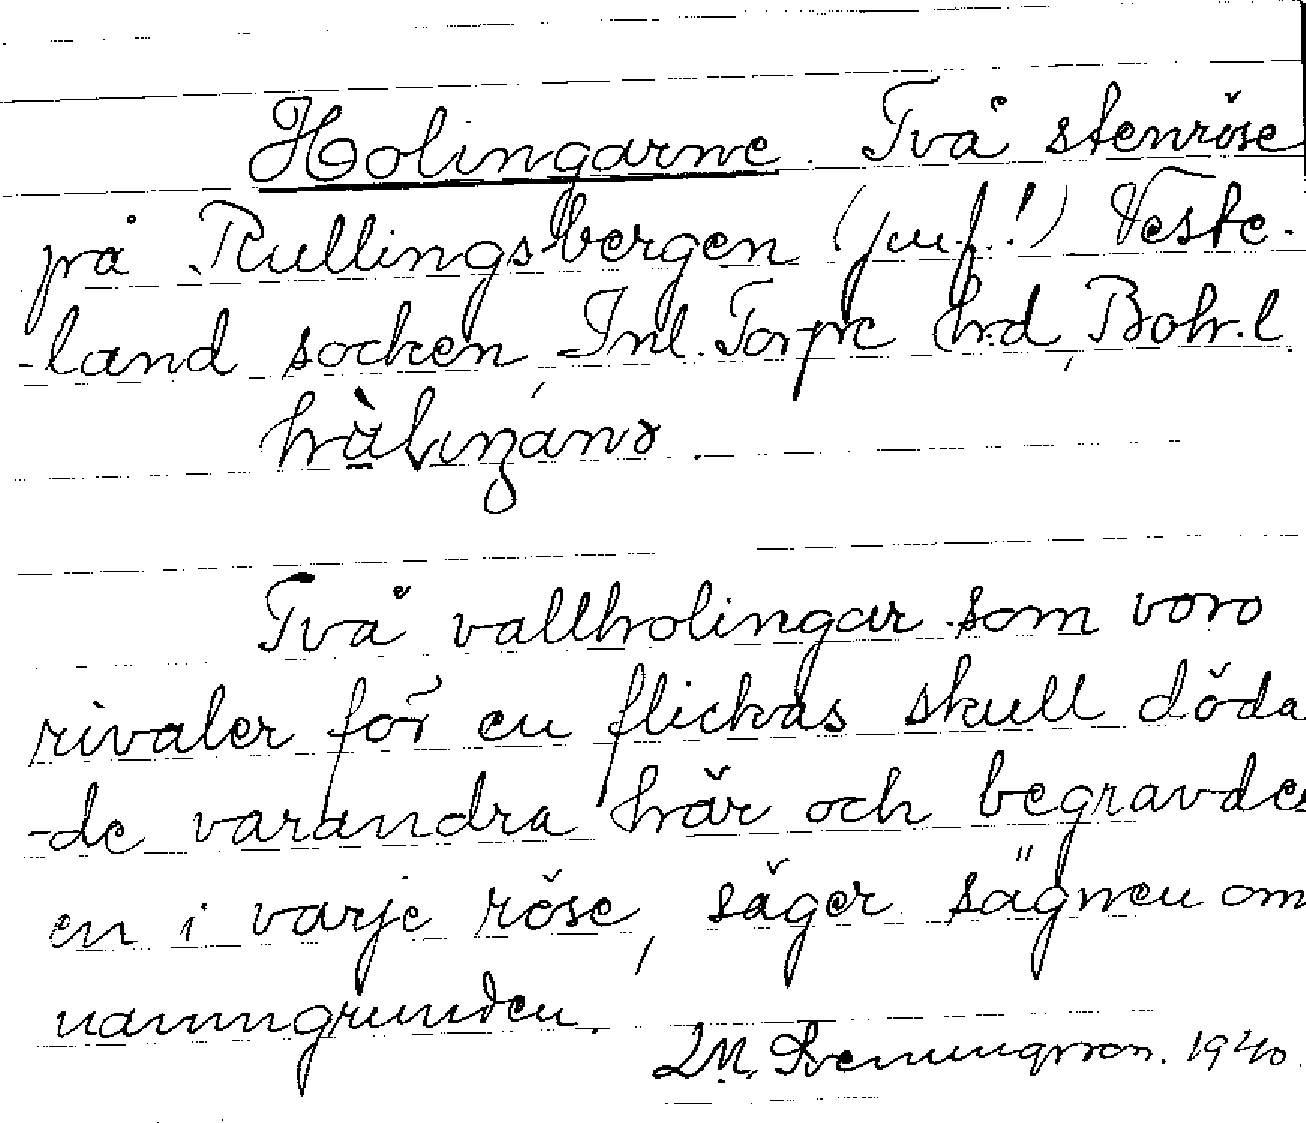 Holingarne. Två stenröse
på Rullingsbergen (juf.!) Veste-
-land socken, Inl. Torpe h.d, Bohr.l
Två vallholingar som voro
rivaler för en flickas skull döda
-de varandra här och begravdes
en i varje röse, säger sägnen om
namngrunden.
1940.